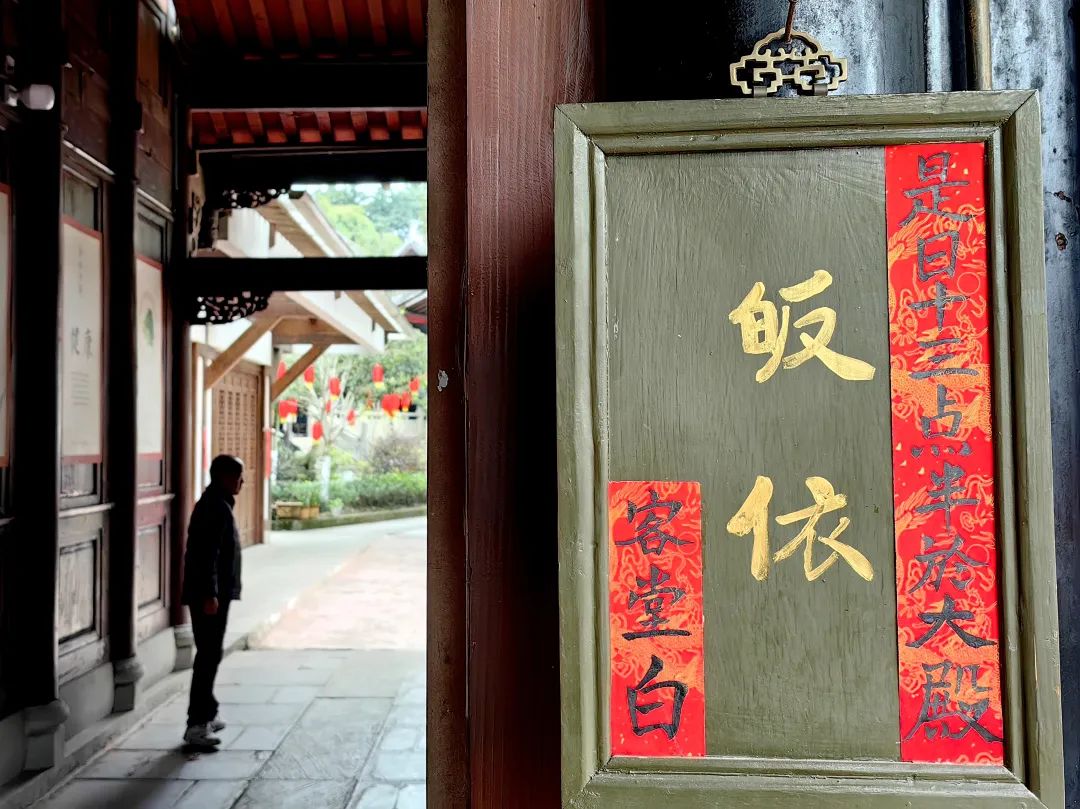 是日十三点半於大殿
皈依
客堂白
健康